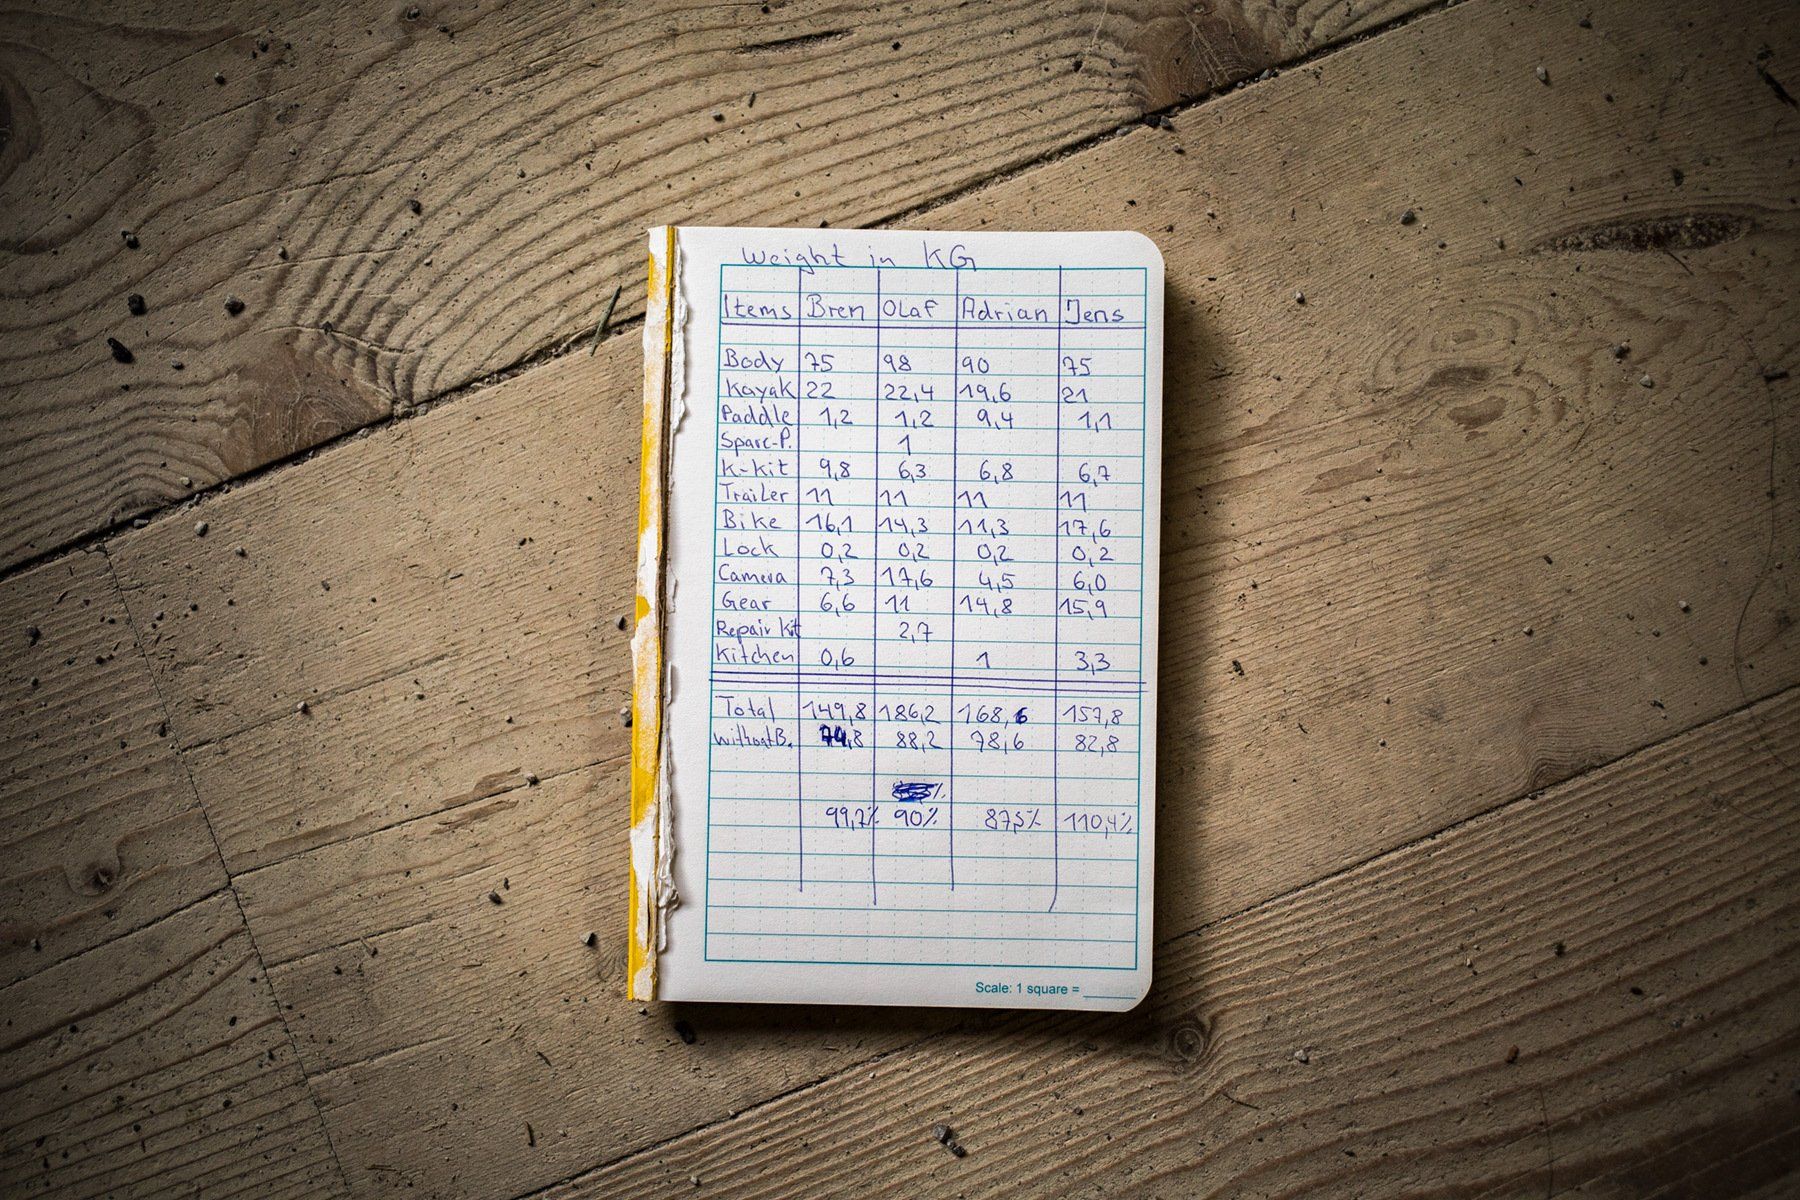 Weight in KG
Items Bren Olaf Adrian Jens
Body 75 98 90 75
Kayak 22 22,4 19,6 21
Paddle 1,2 1,2 9,4 1,1
Spare-P. 1
K-Kit 9,8 6,3 6,8 6,7
Trailer 11 11 11 11
Bike 16,1 14,3 11,3 17,6
Lock 0,2 0,2 0,2 0,2
Camera 7,3 17,6 4,5 6,0
Gear 6,6 11 14,8 15,9
Repair Kit 2,7
Kitchen 0,6 1 3,3
Total 149,8 186,2 168,6 157,8
without B. 74,8 88,2 78,6 82,8
%
99,7% 90% 87,5% 110,4%
Scale: 1 square = ______